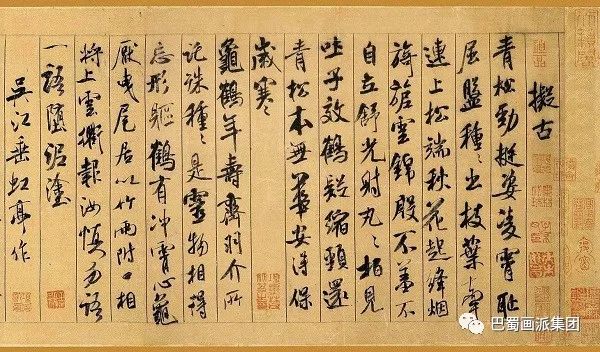 擬古
青松勁挺姿凌霄恥
屈盤種〻出枝葉牽
連上松端秋花起絳烟
旖旎雲錦殷不羞不
自立舒光射丸〻柏見
吐子效鶴疑縮頸還
青松本無華安得保
歲寒〻
龜鶴年壽齊羽介所
託殊種〻是靈物相得
忘形軀鶴有沖霄心龜
厭曳尾居以竹兩附口相
將上雲衢報汝慎勿語
一語墮泥塗
吳江垂虹亭作
巴蜀画派集团